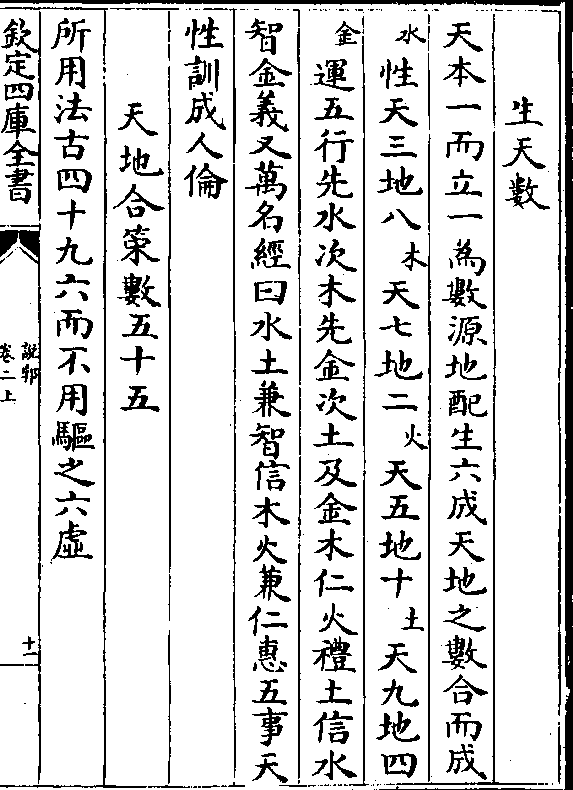 生天數
天本一而立一為數源地配生六成天地之數合而成
水性天三地八木天七地二火天五地十土天九地四
金運五行先水次木先金次土及金木仁火禮土信水
智金義又萬名經曰水土兼智信木火兼仁惠五事天
性訓成人倫
天地合策數五十五
所用法古四十九六而不用驅之六虛
欽定四庫全書
說郛
卷二上
十二